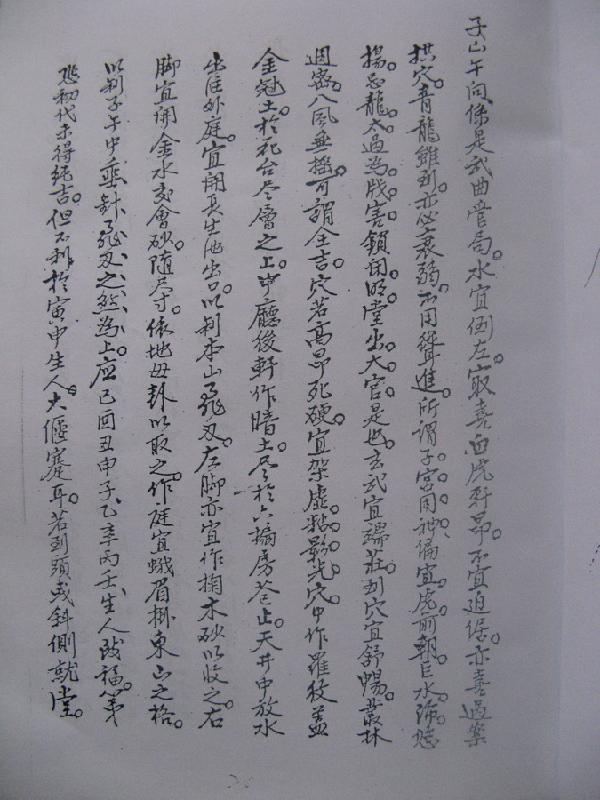 子山午向係是武曲管局。水宜倒左。最喜白虎軒昂。不宜迫促。亦喜過案
拱穴。青龍雖到。亦必衰弱。不用聳進。所謂子宮用神偏宜虎前朝。巨水
揚。忌龍太過為戕害。鎖閉明堂出大官是也。玄武宜端莊。到穴宜舒暢。叢林
週密。八風無搖。可謂全吉。穴若高昂死硬。宜架虛粘影。光穴中作羅紋蓋
金魁土。於死台巻層之上。中廳後軒作暗土。尽於六摘房卷止。天井中放水
出淮外庭。宜開長生池出口。以制本山飛刃。左脚亦宜作掬木砂以收之。右
脚宜開金水交會砂。隨尽寸。依地母卦以取之。作庭宜蛾眉掛東山之格。
以制子午中垂針飛刃之然為上。应巳酉丑申子乙辛丙壬生人發福。第
恐初代未得純吉。但不利於寅申生人。大偃蹇耳。若到頭或斜側就堂。